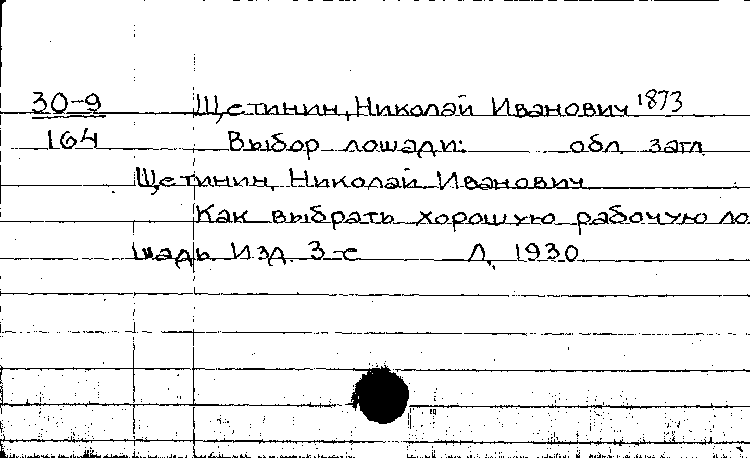 30-9 Щетинин, Николай Иванович 1873
164 Выбор лошади: обл. загл
Щетинин, Николай Иванович
Как выбрать хорошую рабочую ло
шадь. Изд. 3-е Л, 1930